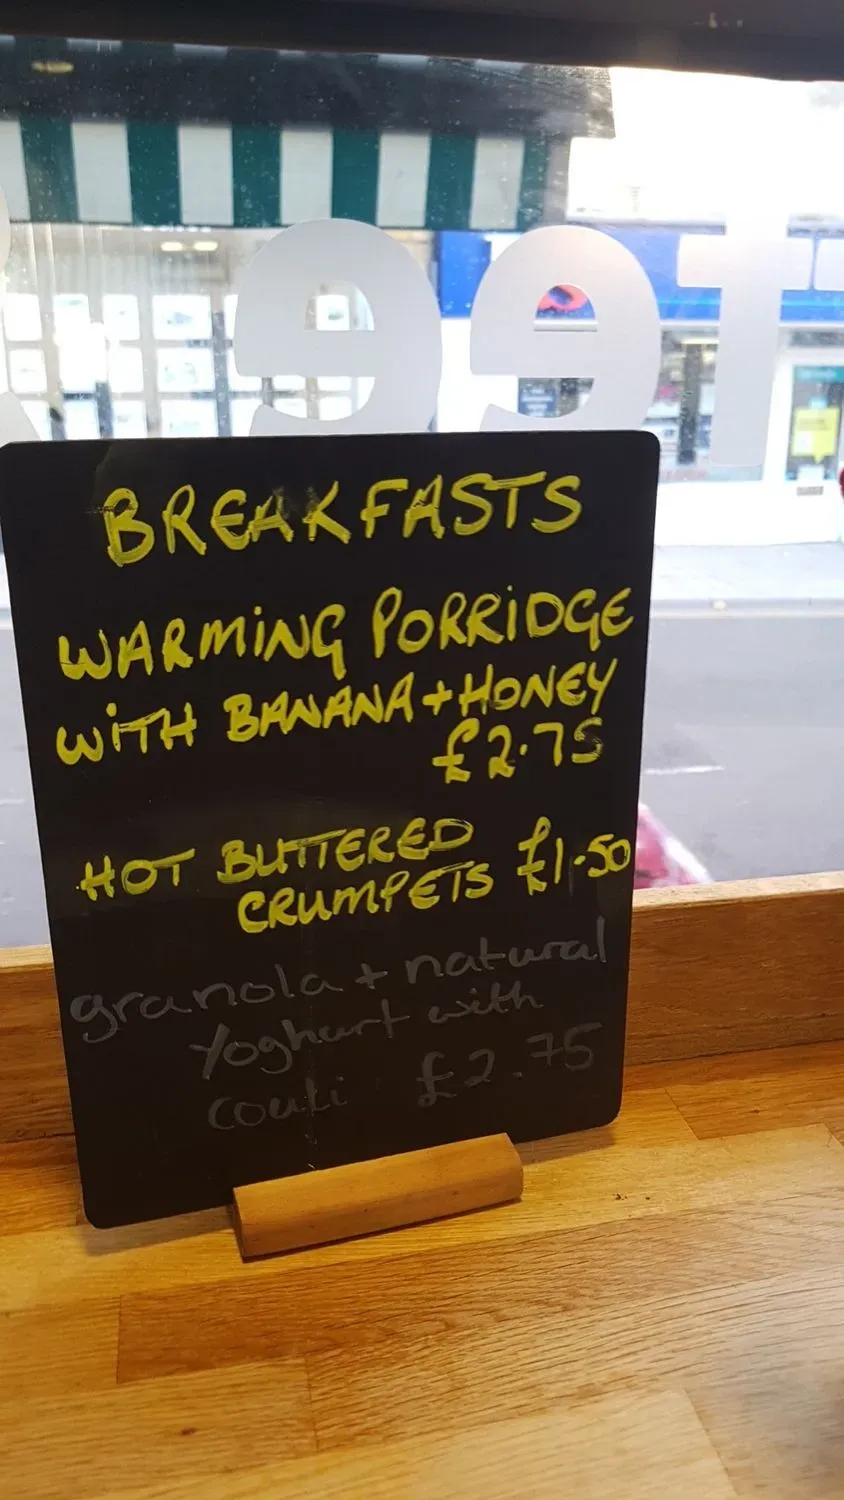 BREAKFASTS
WARMING PORRIDGE
WITH BANANA + HONEY
£2.75
HOT BUTTERED
CRUMPETS £1.50
granola + natural
Yoghurt with
couli £2.75